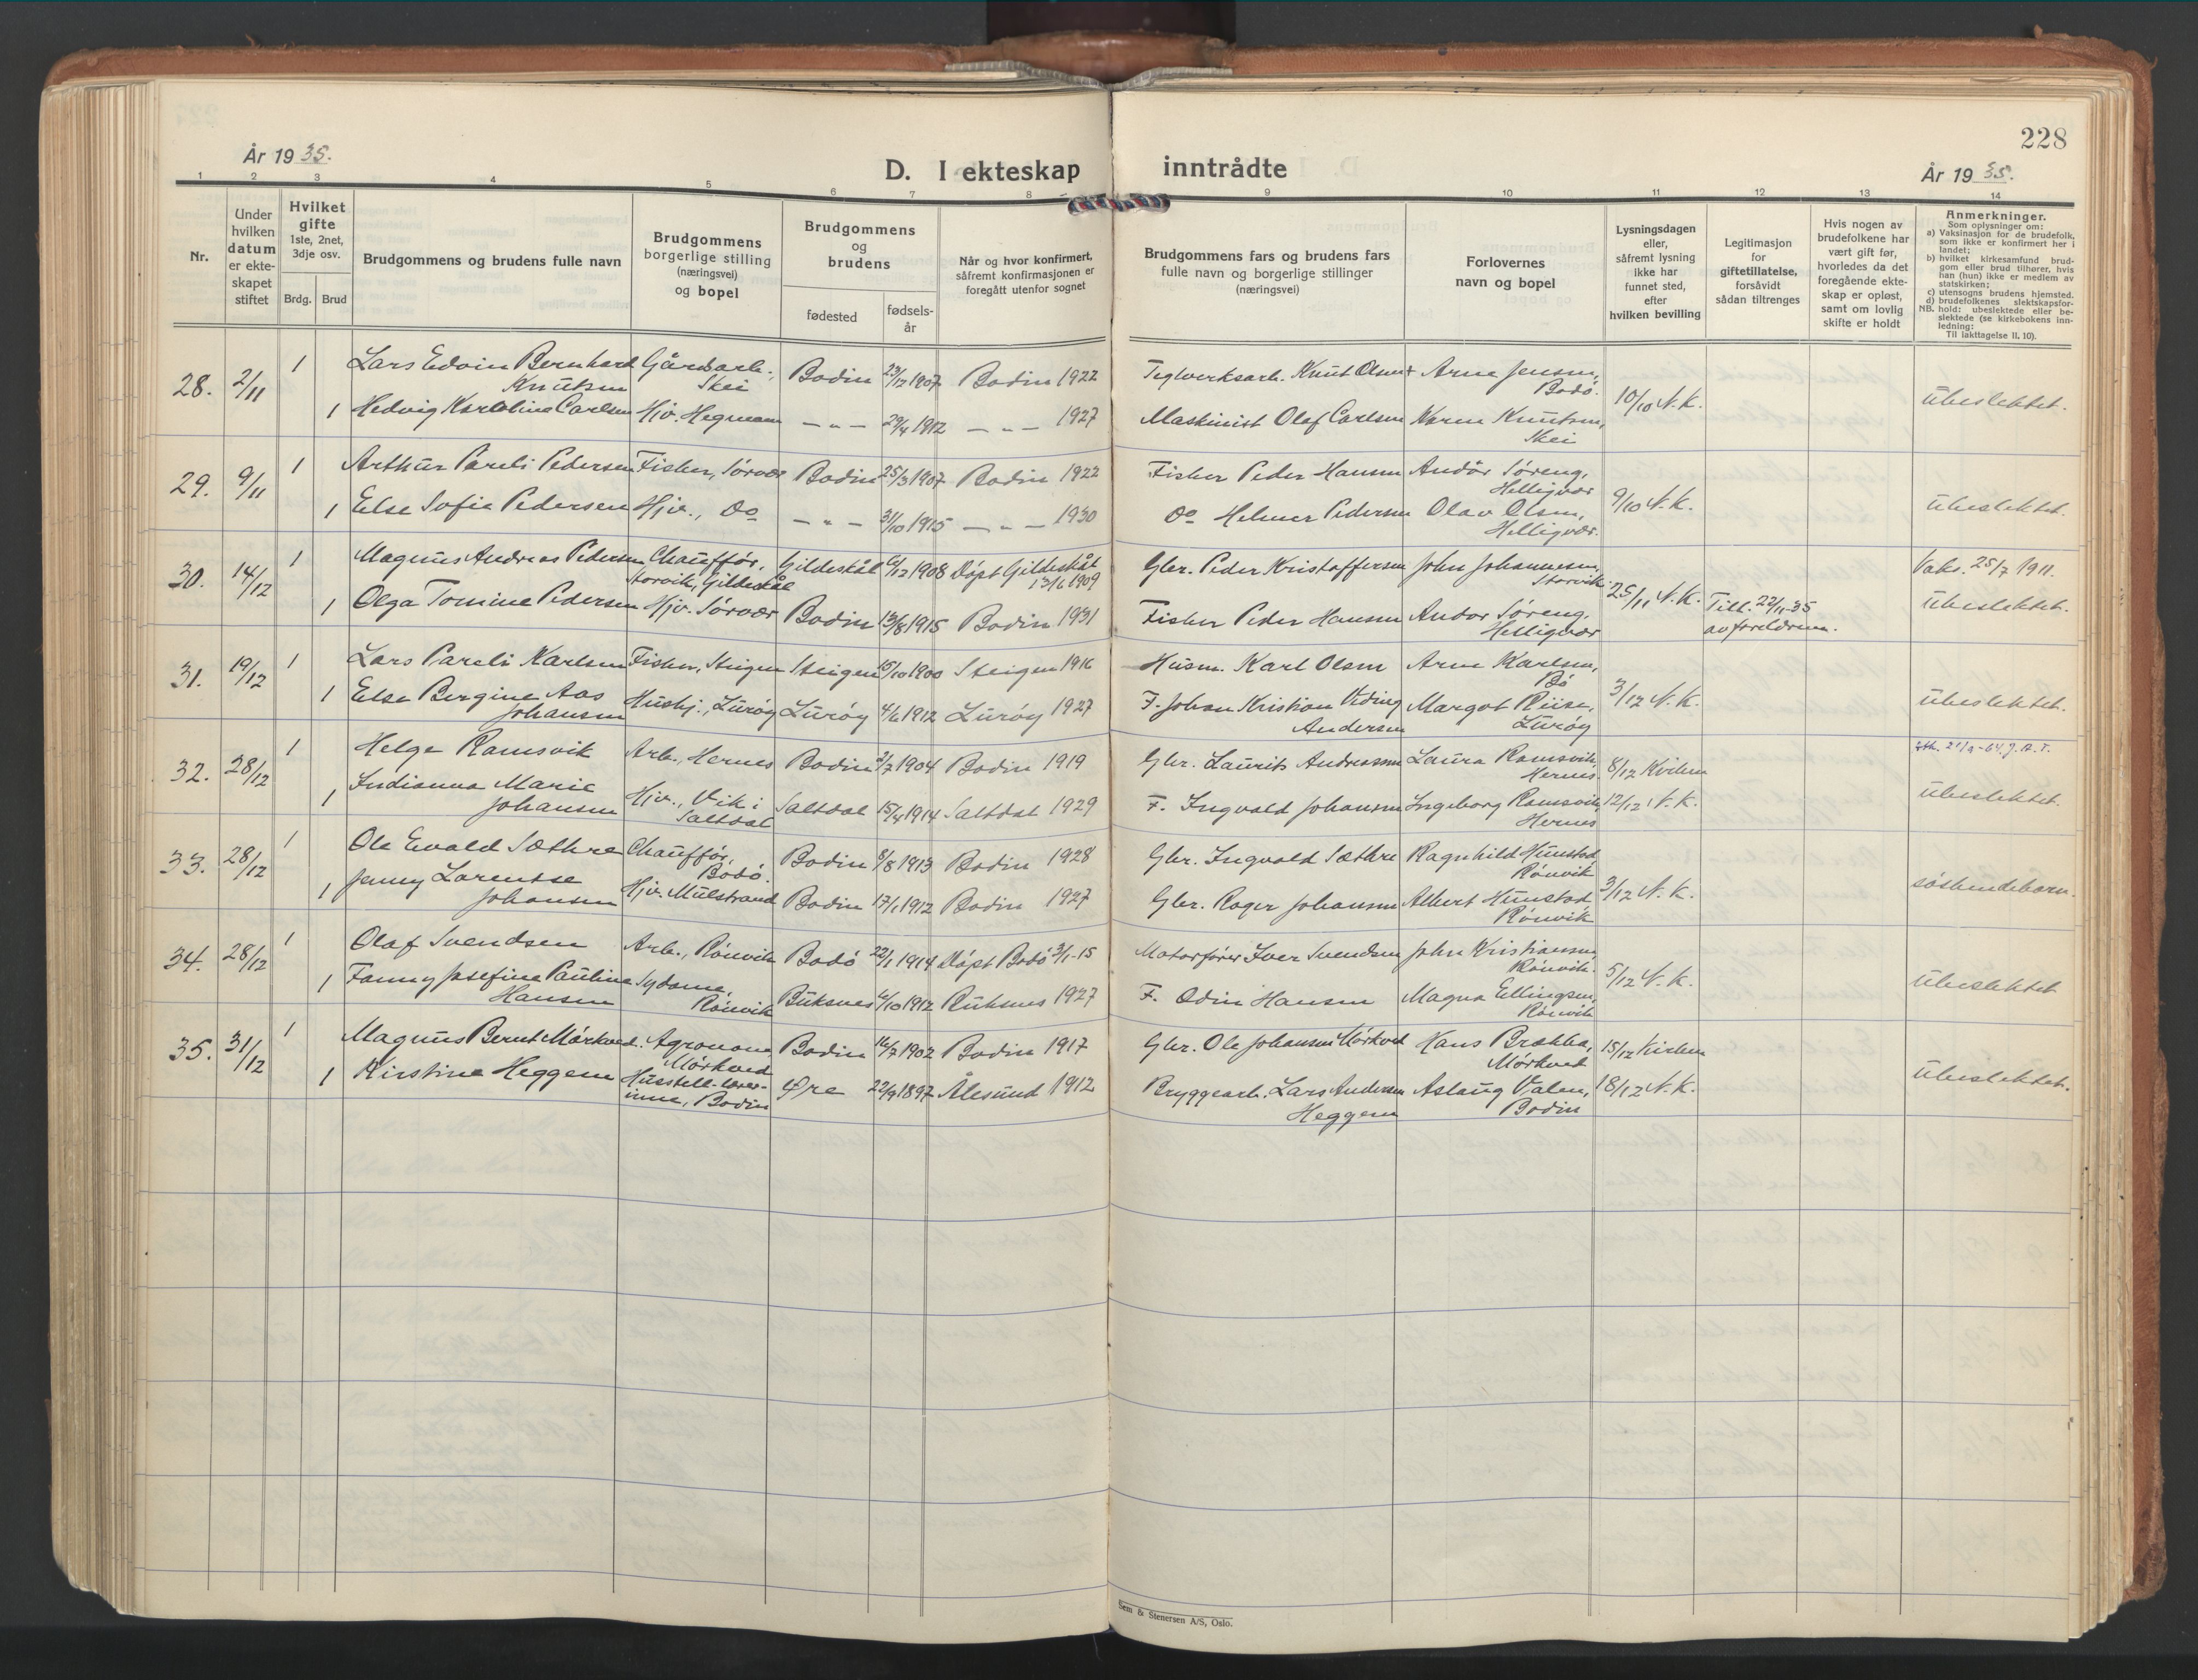 228
År 1935.
D. I ekteskap inntrådte
År 1935.
1 2 3 4 5 6 7 8 9 10 11 12 13 14
Nr.
Under hvilken datum er ekteskapet stiftet
Hvilket gifte 1ste, 2net, 3dje osv.
Brdg. Brud
Brudgommens og brudens fulle navn
Brudgommens borgerlige stilling (næringsvei) og bopel
Brudgommens og brudens
fødested
fødselsår
Når og hvor konfirmert, såfremt konfirmasjonen er foregått utenfor sognet
Brudgommens fars og brudens fars fulle navn og borgerlige stillinger (næringsvei)
Forlovernes navn og bopel
Lysningsdagen eller, såfremt lysning ikke har funnet sted, efter hvilken bevilling
Legitimasjon for giftetillatelse, forsåvidt sådan tiltrenges
Hvis nogen av brudefolkene har vært gift før, hvorledes da det foregående ekteskap er opløst, samt om lovlig skifte er holdt
Anmerkninger.
Som oplysninger om:
a) Vaksinasjon for de brudefolk, som ikke er konfirmert her i landet;
b) hvilket kirkesamfund brudgom eller brud tilhører, hvis han (hun) ikke er medlem av statskirken;
c) utensogns brudens hjemsted.
d) brudefolkenes slektskapsforhold: ubeslektede eller beslektede (se kirkebokens innledning:
NB. Til iakttagelse II. 10).
28. 2/11 1 Lars Edvin Bernhard Knutsen Gårdsarb., Skei Bodin 23/12 1907 Bodin 1922 Teglverksarb. Knut Olsen + Arne Jensen, Bodø. 10/10 N.K. Ubeslektet.
1 Hedvig Karoline Carlsen Hjv. Hegmoen — " — 29/4 1912 — " — 1927 Maskinist Olaf Carlsen Karen Knutsen, Skei
29. 9/11 1 Arthur Pareli Pedersen Fisker, Sørvær Bodin 25/3 1907 Bodin 1922 Fisker Peder Hansen Andor Søreng, Helligvær 9/10 N.K. Ubeslektet.
1 Else Sofie Pedersen Hjv., Do — " — 31/10 1915 — " — 1930 Do Helmer Pedersen Olav Olsen, Helligvær.
30. 14/12 1 Magnus Andreas Pedersen Chauffør, Storvik, Gildeskål Gildeskål 6/12 1908 Døpt Gildeskål 13/6 1909 Gbr. Peder Kristoffersen John Johannesen, Storvik. 25/11 N.K. Vaks. 25/7 1911.
1 Olga Tomine Pedersen Hjv. Sørvær Bodin 13/8 1915 Bodin 1931 Fisker Peder Hansen Andor Søreng, Helligvær Till. 22/11-35 av foreldrene. Ubeslektet.
31. 19/12 1 Lars Pareli Karlsen Fisker, Steigen Steigen 15/10 1900 Steigen 1916 Husm. Karl Olsen Arne Karlsen, Bø 3/12 N.K. Ubeslektet.
1 Else Bergine Aas Johansen Hushj., Lurøy Lurøy 4/6 1912 Lurøy 1927 F. Johan Kristian Viding Andersen Margot Riise, Lurøy
32. 28/12 1 Helge Ramsvik Arb., Hernes Bodin 2/7 1904 Bodin 1919 Gbr. Laurits Andreassen Laura Ramsvik, Hernes. 8/12 Kirken
1 Indianna Marie Johansen Hjv., Vik i Saltdal Saltdal 15/4 1914 Saltdal 1929 F. Ingvald Johansen Ingeborg Ramsvik, Hernes 12/12 N.K. Ubeslektet.
33. 28/12 1 Ole Evald Sæthre Chauffør, Bodø. Bodin 8/8 1913 Bodin 1928 Gbr. Ingvald Sæthre Ragnhild Hunstad, Rønvik 3/12 N.K. søskendebarn.
1 Jenny Lorentse Johansen Hjv. Mulstrand Bodin 17/1 1912 Bodin 1927 Gbr. Roger Johansen Albert Hunstad, Rønvik
34. 28/12 1 Olaf Svendsen Arb., Rønvik Bodø 22/1 1914 Døpt Bodø 3/1-15 Motorfører Iver Svendsen John Kristiansen, Rønvik. 5/12 N.K. Ubeslektet
1 Fanny Josefine Pauline Hansen Sydame, Rønvik Buksnes 4/10 1912 Buksnes 1927 F. Odin Hansen Magna Ellingsen, Rønvik
35. 31/12 1 Magnus Bernt Mørkved. Agronom, Mørkved Bodin 16/7 1902 Bodin 1917 Gbr. Ole Johansen Mørkved Hans Brækka, Mørkved 15/12 Kirken
1 Kirstine Heggem Husstell-lærerinne, Bodin Øre 22/9 1897 Ålesund 1912 Bryggearb. Lars Andersen Heggem Aslaug Valen, Bodin 18/12 N.K. Ubeslektet.
Sem & Stenersen A/S, Oslo.